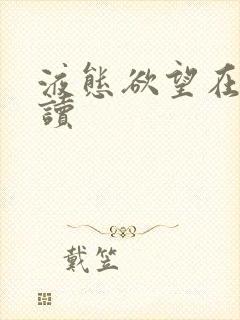 液態欲望在
讀
戴笠